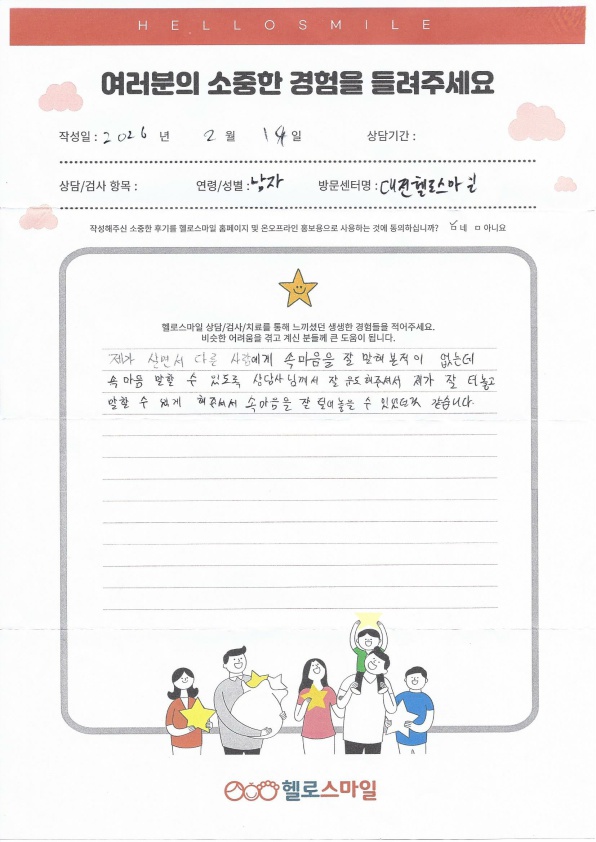 HELLOSMILE
여러분의 소중한 경험을 들려주세요
작성일 : 2026 년 2 월 14 일 상담기간 :
상담/검사 항목 : 연령/성별 : 남자 방문센터명 : 대전헬로스마일
작성해주신 소중한 후기를 헬로스마일 홈페이지 및 온오프라인 홍보용으로 사용하는 것에 동의하십니까? ☑ 네 □ 아니요
헬로스마일 상담/검사/치료를 통해 느끼셨던 생생한 경험들을 적어주세요.
비슷한 어려움을 겪고 계신 분들께 큰 도움이 됩니다.
제가 살면서 다른 사람에게 속마음을 잘 말해본적이 없는데
속마음 말할 수 있도록 상담사님께서 잘 유도해주셔서 제가 잘 터놓고
말할 수 있게 해주셔서 속마음을 잘 털어놓을 수 있었던거 같습니다.
헬로스마일